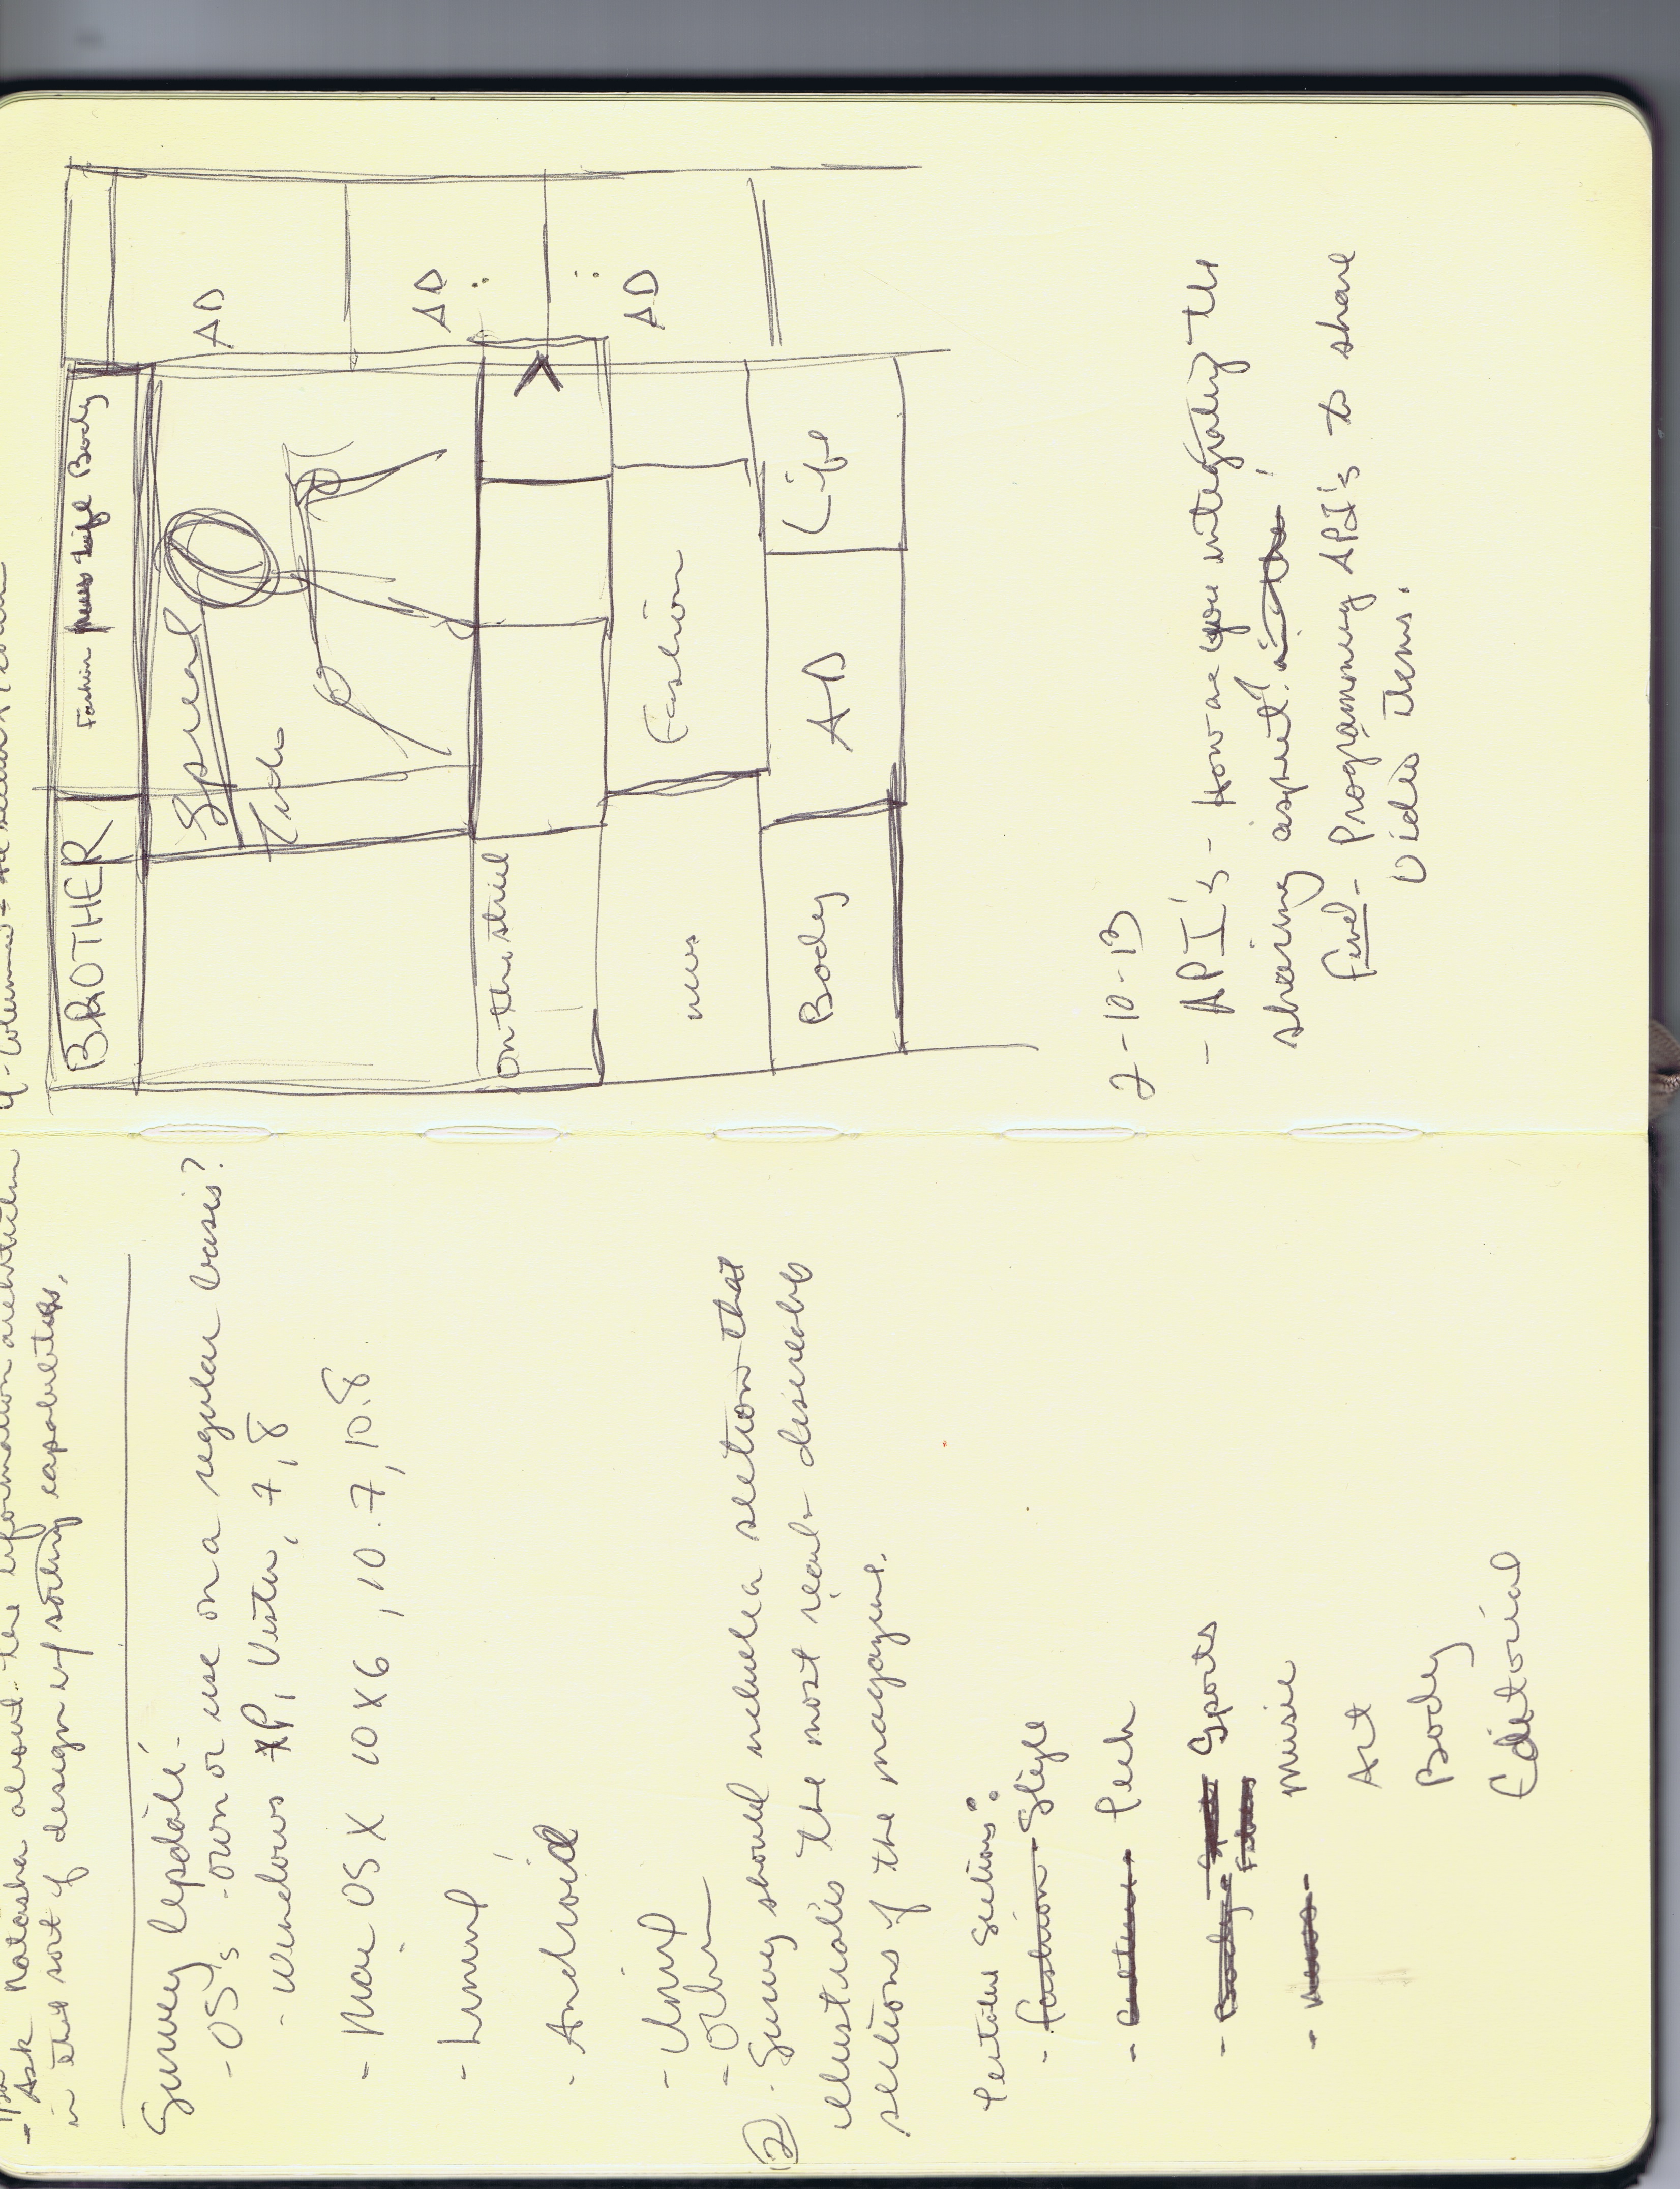 - Ask Natasha about the information architecture
in that sort of design w/ sorting capabilities.
Survey Update:
- OS's - own or use on a regular basis?
- Windows XP, Vista, 7, 8
- Mac OS X 10X6, 10.7, 10.8
- Linux
- Android
- Unix
- Other
2 - Survey should include a section that
illustrates the most desireable
sections of the magazine.
Tentative Sections:
- Fashion - Style
- Culture - Tech
- Body - Sports Sports
Fitness
- News - Music
Art
Body
Editorial
4-Column - Ad section
BROTHER Fashion News Life Body
Spread
Title
AD
AD
On the street
AD
news Fashion
Body AD Life
2-10-13
- API's - How are you integrating the
sharing aspect? in the
Find - Programming API's to share
Video items.